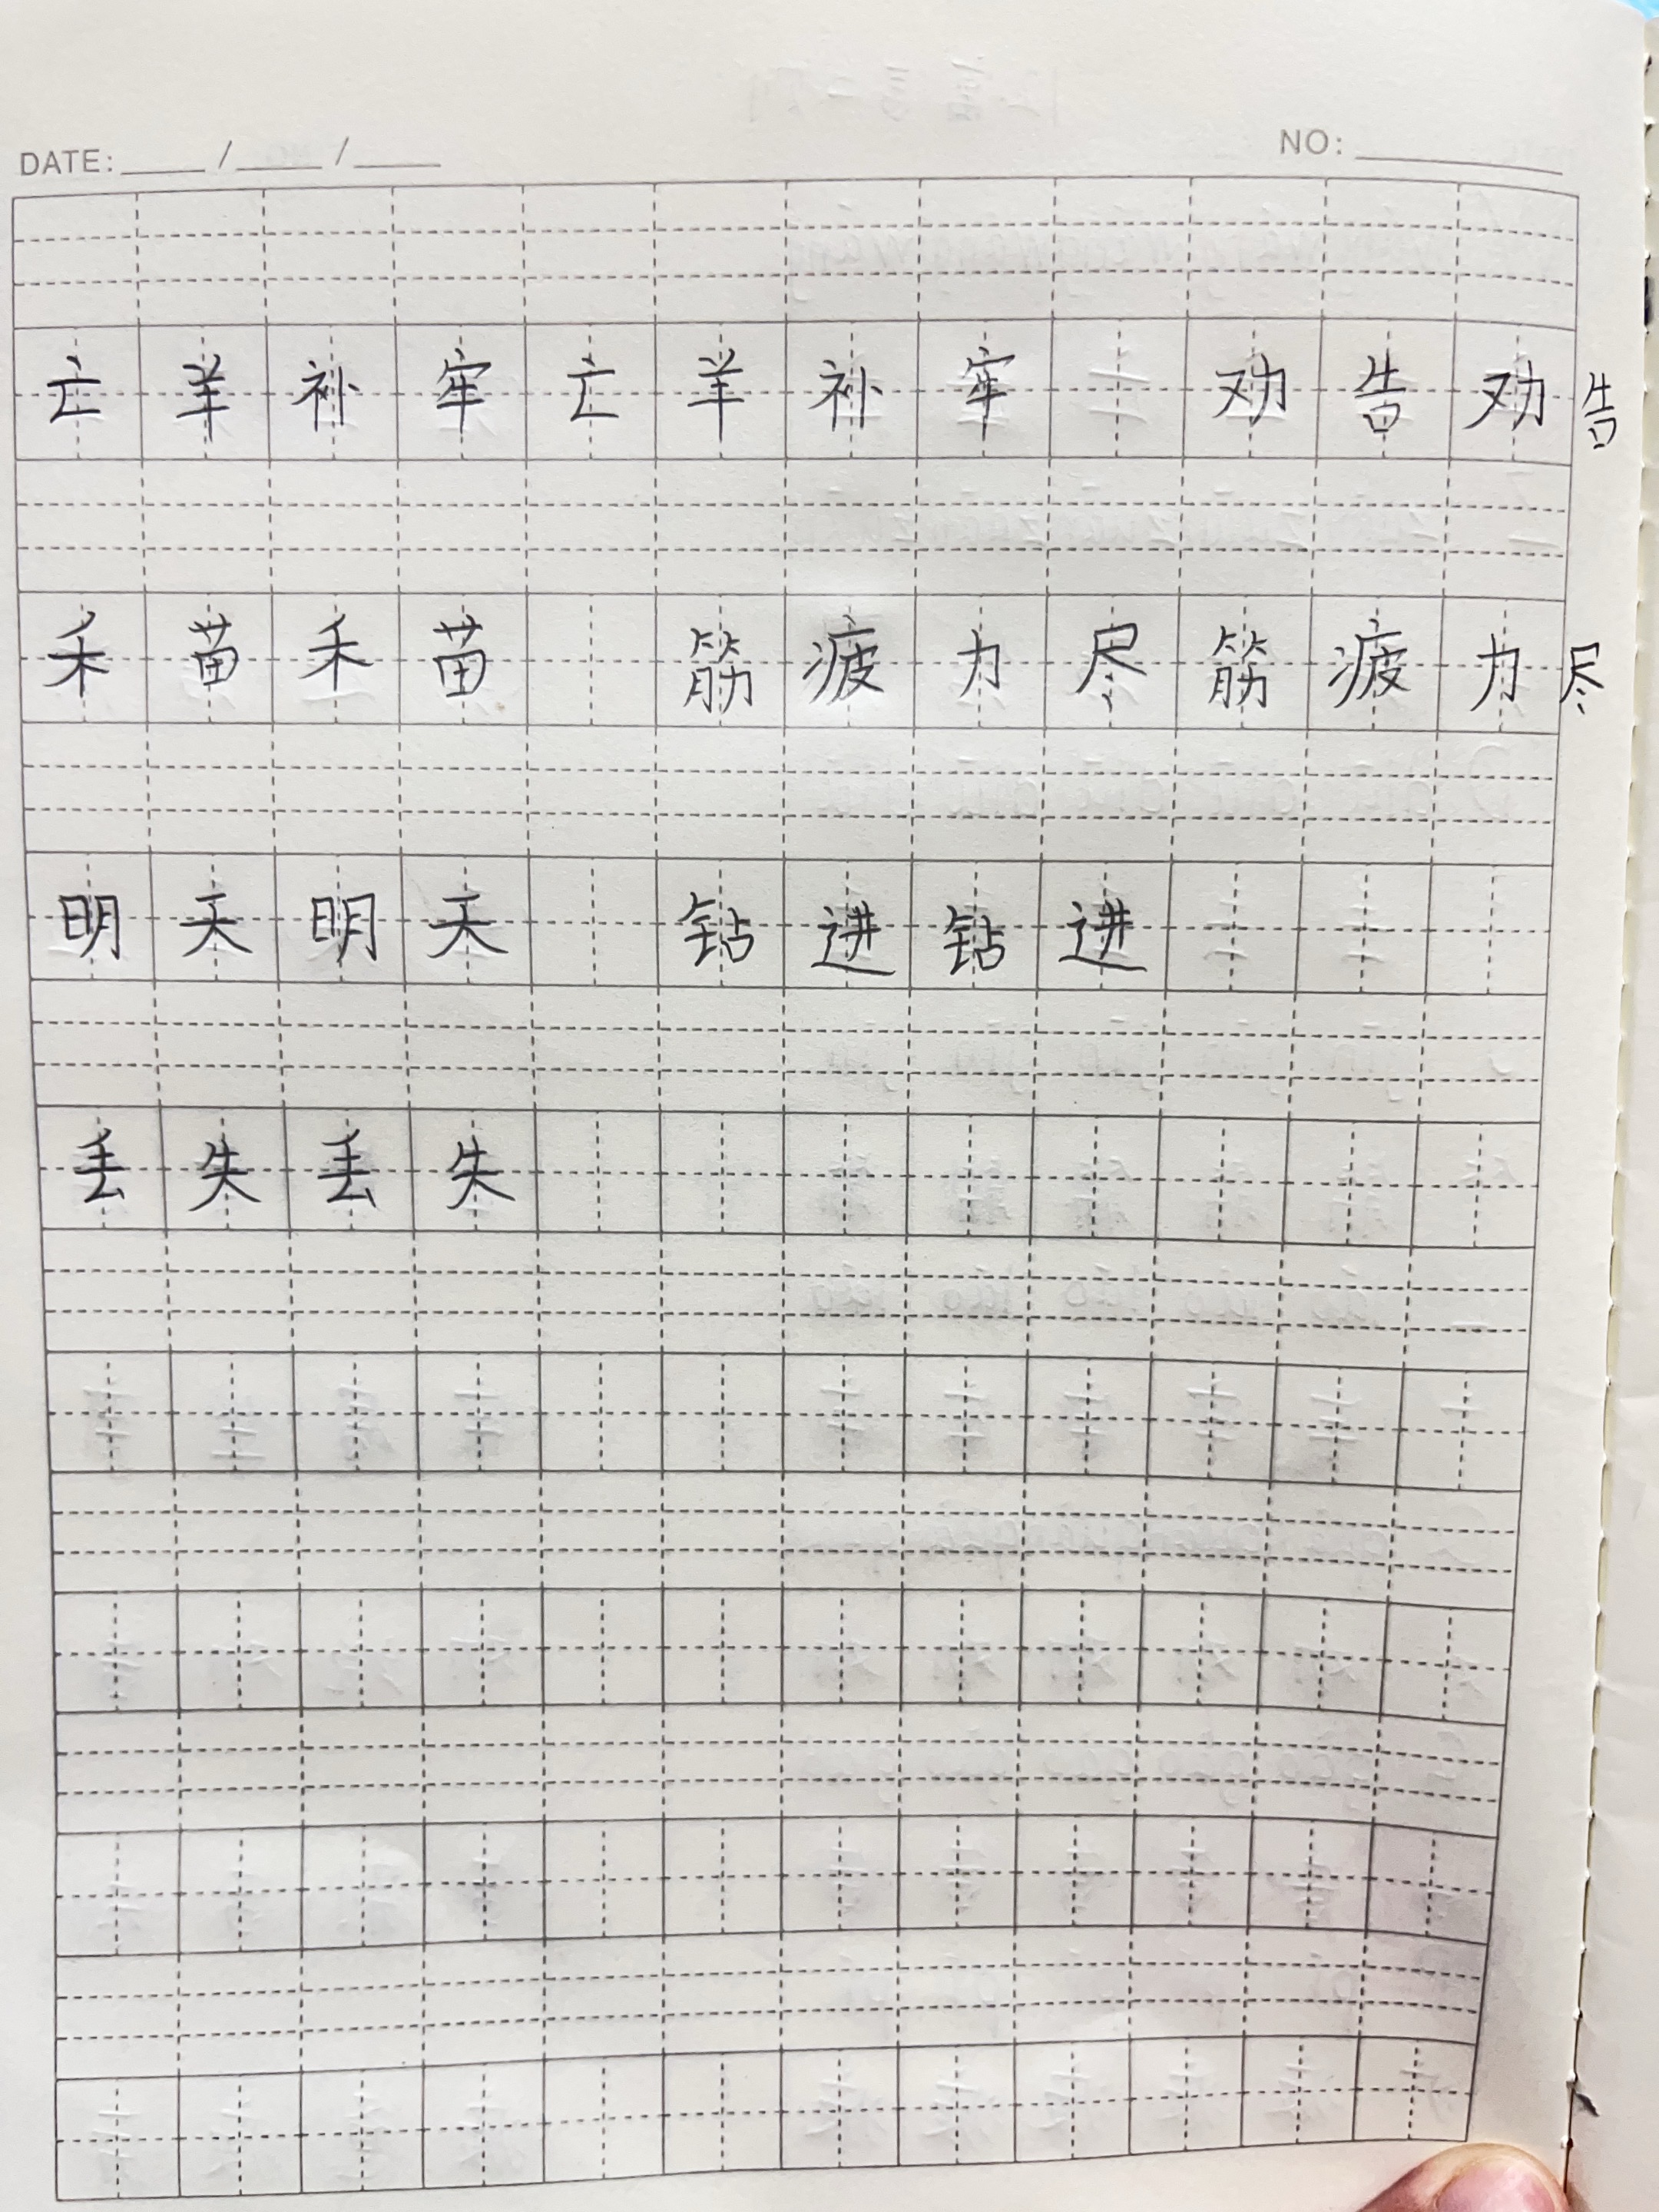 DATE: ____ / ____ / ____ NO: ________
亡羊补牢亡羊补牢 劝告劝告
禾苗禾苗 筋疲力尽筋疲力尽
明天明天 钻进钻进
丢失丢失